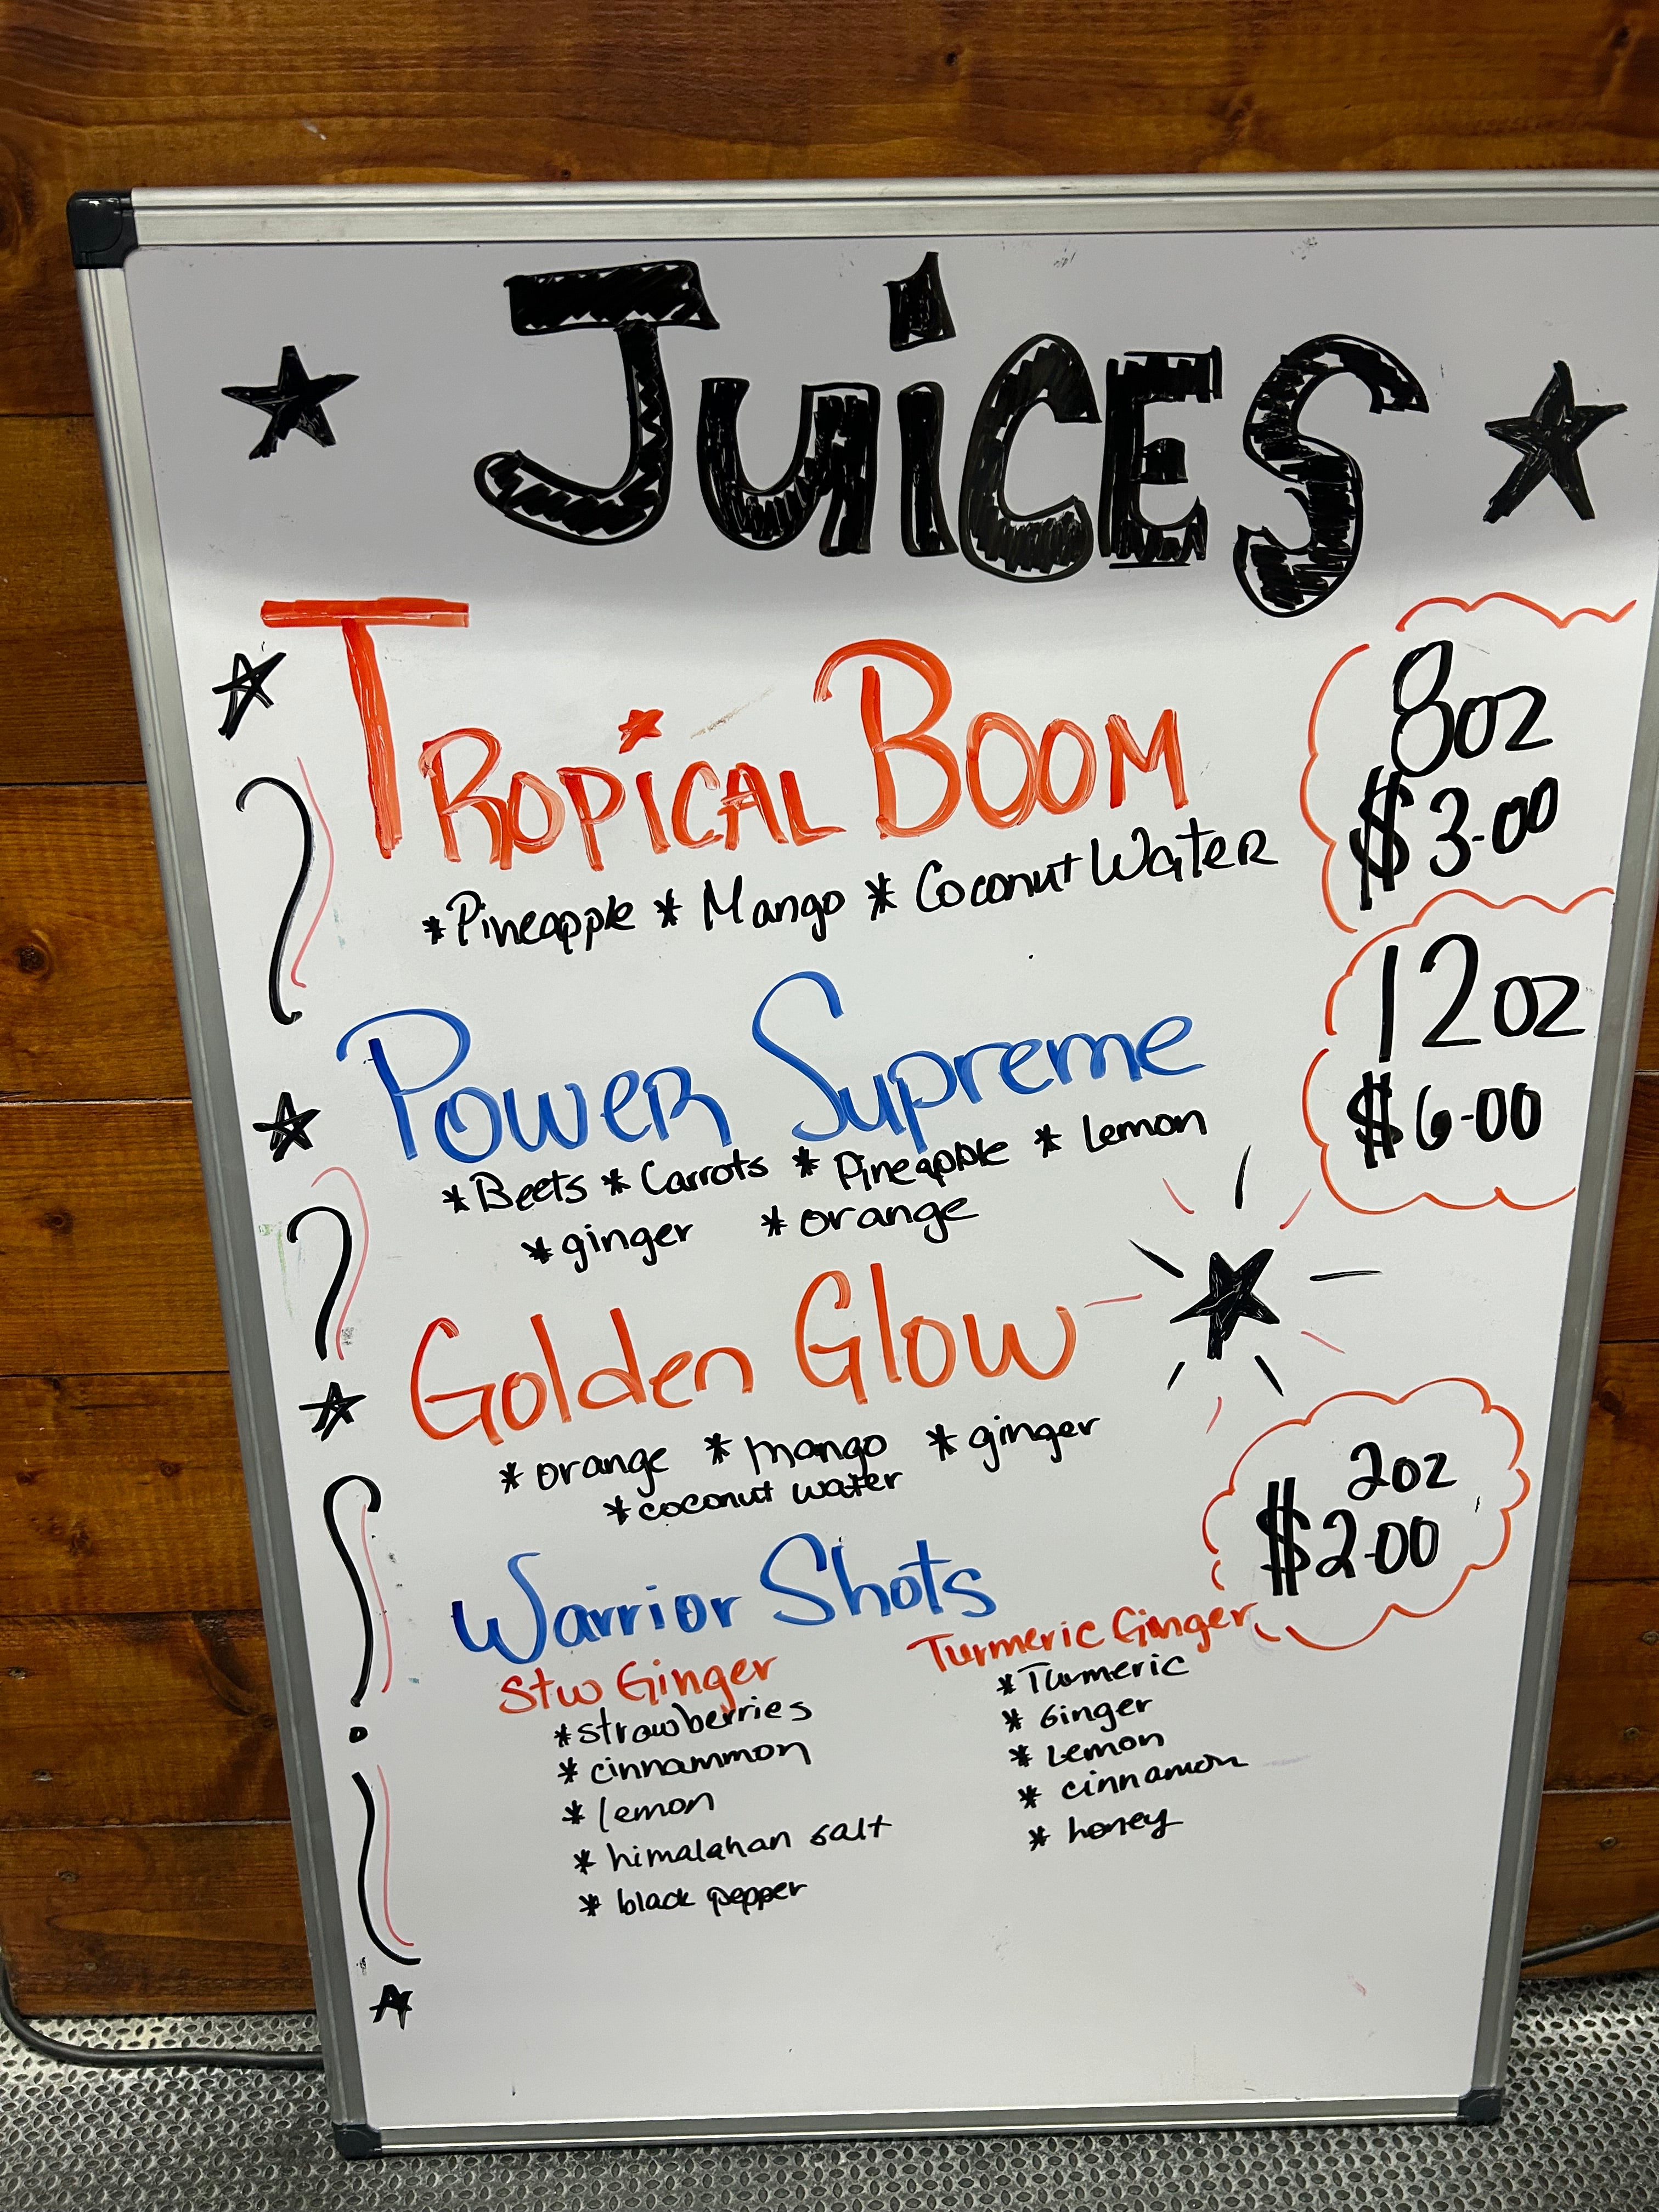 JUiCES
TROPiCAL BOOM
8oz
$3.00
*Pineapple * Mango * Coconut WateR
12oz
$6.00
PoweR Supreme
*Beets * Carrots * Pineapple * Lemon
*ginger *orange
Golden Glow
*orange *mango *ginger
*coconut water
2oz
$2.00
Warrior Shots
Stw Ginger
*strawberries
*cinnammon
*lemon
*himalahan salt
*black pepper
Turmeric Ginger
*Turmeric
*Ginger
*Lemon
*cinnamon
*honey